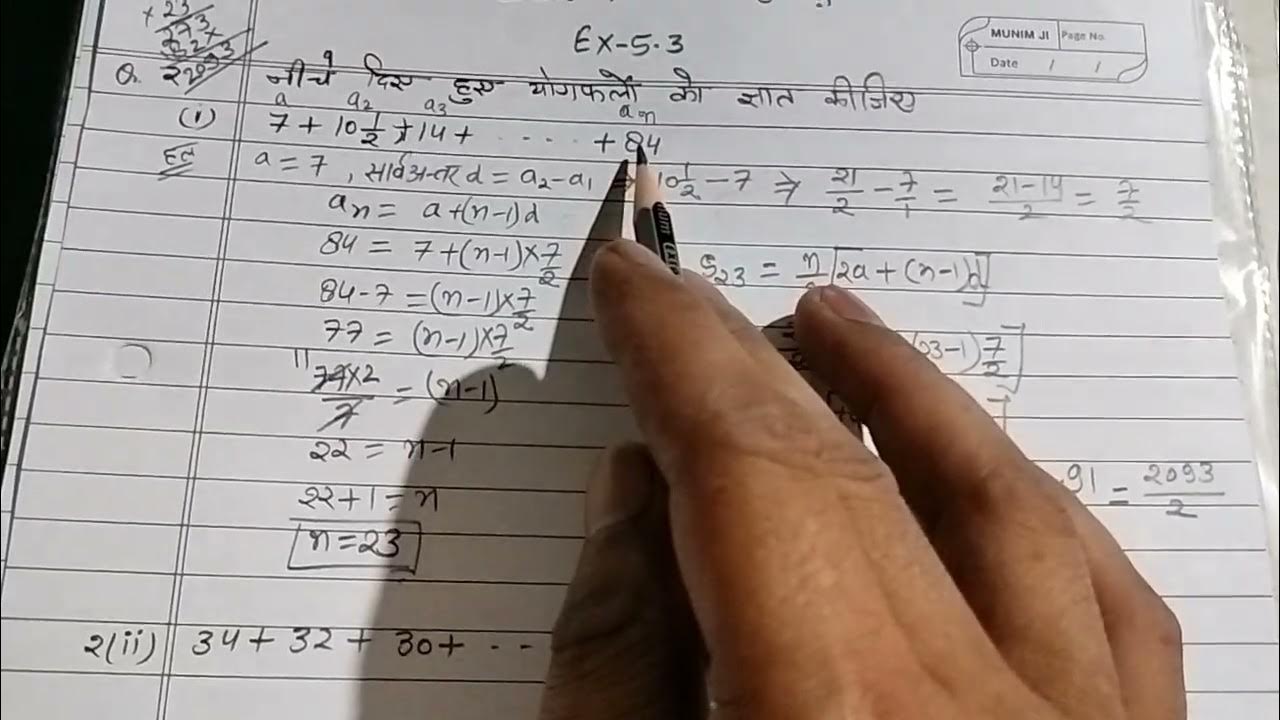 +23
Ex-5.3
MUNIM JI Page No.
Date / /
Q. नीचे दिए हुए योगफलों को ज्ञात कीजिए
a a₂ a₃ aₙ
(i) 7 + 10 1/2 + 14 + ..... + 84
हल a = 7, सार्वअन्तर d = a₂ - a₁ ⇒ 10 1/2 - 7 ⇒ 21/2 - 7/1 = 21-14/2 = 7/2
aₙ = a+(n-1)d
84 = 7+(n-1)×7/2
84-7 = (n-1)×7/2
77 = (n-1)×7/2
11
77×2/7 = (n-1)
22 = n-1
22+1 = n
n=23
S₂₃ = n/ [2a + (n-1)d]
03-1) 7/2]
91 = 2093/2
2(ii) 34 + 32 + 30 + - -